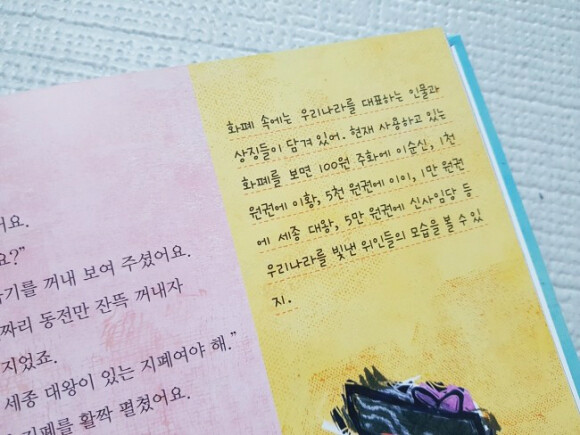 어요.
요?"
기를 꺼내 보여 주셨어요.
짜리 동전만 잔뜩 꺼내자
지었죠.
세종 대왕이 있는 지폐여야 해."
지폐를 활짝 펼쳤어요.
화폐 속에는 우리나라를 대표하는 인물과
상징들이 담겨 있어. 현재 사용하고 있는
화폐를 보면 100원 주화에 이순신, 1천
원권에 이황, 5천 원권에 이이, 1만 원권
에 세종 대왕, 5만 원권에 신사임당 등
우리나라를 빛낸 위인들의 모습을 볼 수 있
지.